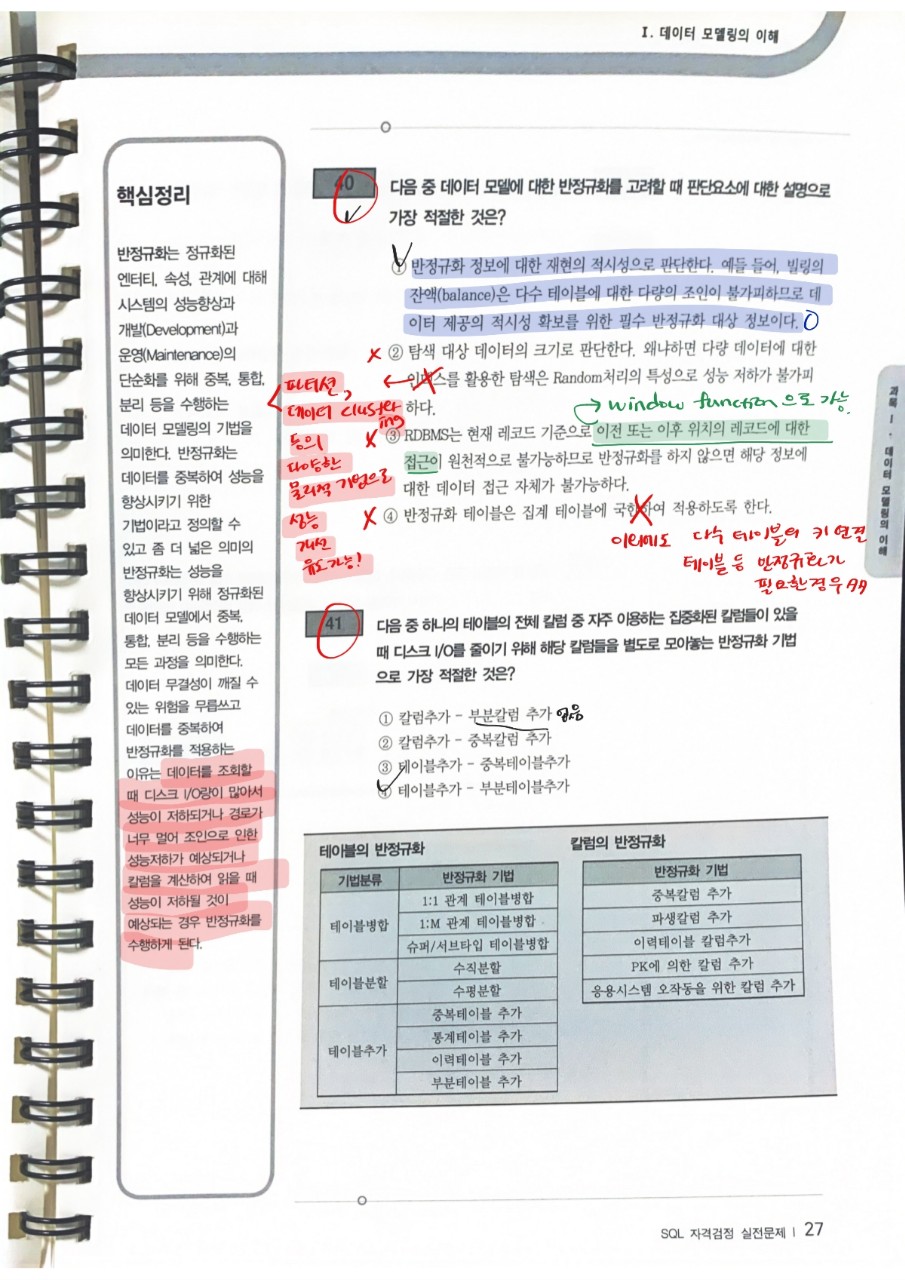 Ⅰ. 데이터 모델링의 이해
핵심정리
반정규화는 정규화된
엔터티, 속성, 관계에 대해
시스템의 성능향상과
개발(Development)과
운영(Maintenance)의
단순화를 위해 중복, 통합,
분리 등을 수행하는
데이터 모델링의 기법을
의미한다. 반정규화는
데이터를 중복하여 성능을
향상시키기 위한
기법이라고 정의할 수
있고 좀 더 넓은 의미의
반정규화는 성능을
향상시키기 위해 정규화된
데이터 모델에서 중복,
통합, 분리 등을 수행하는
모든 과정을 의미한다.
데이터 무결성이 깨질 수
있는 위험을 무릅쓰고
데이터를 중복하여
반정규화를 적용하는
이유는 데이터를 조회할
때 디스크 I/O량이 많아서
성능이 저하되거나 경로가
너무 멀어 조인으로 인한
성능저하가 예상되거나
칼럼을 계산하여 읽을 때
성능이 저하될 것이
예상되는 경우 반정규화를
수행하게 된다.
40
다음 중 데이터 모델에 대한 반정규화를 고려할 때 판단요소에 대한 설명으로
가장 적절한 것은?
① 반정규화 정보에 대한 재현의 적시성으로 판단한다. 예들 들어, 빌링의
잔액(balance)은 다수 테이블에 대한 다량의 조인이 불가피하므로 데
이터 제공의 적시성 확보를 위한 필수 반정규화 대상 정보이다.
② 탐색 대상 데이터의 크기로 판단한다. 왜냐하면 다량 데이터에 대한
인덱스를 활용한 탐색은 Random처리의 특성으로 성능 저하가 불가피
하다.
파티션,
데이터 clustering
등의
다양한
물리적 기법으로
성능
개선
유도가능!
window function으로 가능
③ RDBMS는 현재 레코드 기준으로 이전 또는 이후 위치의 레코드에 대한
접근이 원천적으로 불가능하므로 반정규화를 하지 않으면 해당 정보에
대한 데이터 접근 자체가 불가능하다.
④ 반정규화 테이블은 집계 테이블에 국한하여 적용하도록 한다.
이외에도 다수 테이블의 키 연결
테이블 등 반정규화가
필요한 경우
41
다음 중 하나의 테이블의 전체 칼럼 중 자주 이용하는 집중화된 칼럼들이 있을
때 디스크 I/O를 줄이기 위해 해당 칼럼들을 별도로 모아놓는 반정규화 기법
으로 가장 적절한 것은?
① 칼럼추가 - 부분칼럼 추가 없음
② 칼럼추가 - 중복칼럼 추가
③ 테이블추가 - 중복테이블추가
④ 테이블추가 - 부분테이블추가
테이블의 반정규화
기법분류 반정규화 기법
테이블병합
1:1 관계 테이블병합
1:M 관계 테이블병합
슈퍼/서브타입 테이블병합
테이블분할
수직분할
수평분할
테이블추가
중복테이블 추가
통계테이블 추가
이력테이블 추가
부분테이블 추가
칼럼의 반정규화
반정규화 기법
중복칼럼 추가
파생칼럼 추가
이력테이블 칼럼추가
PK에 의한 칼럼 추가
응용시스템 오작동을 위한 칼럼 추가
과목 Ⅰ · 데이터 모델링의 이해
SQL 자격검정 실전문제 | 27